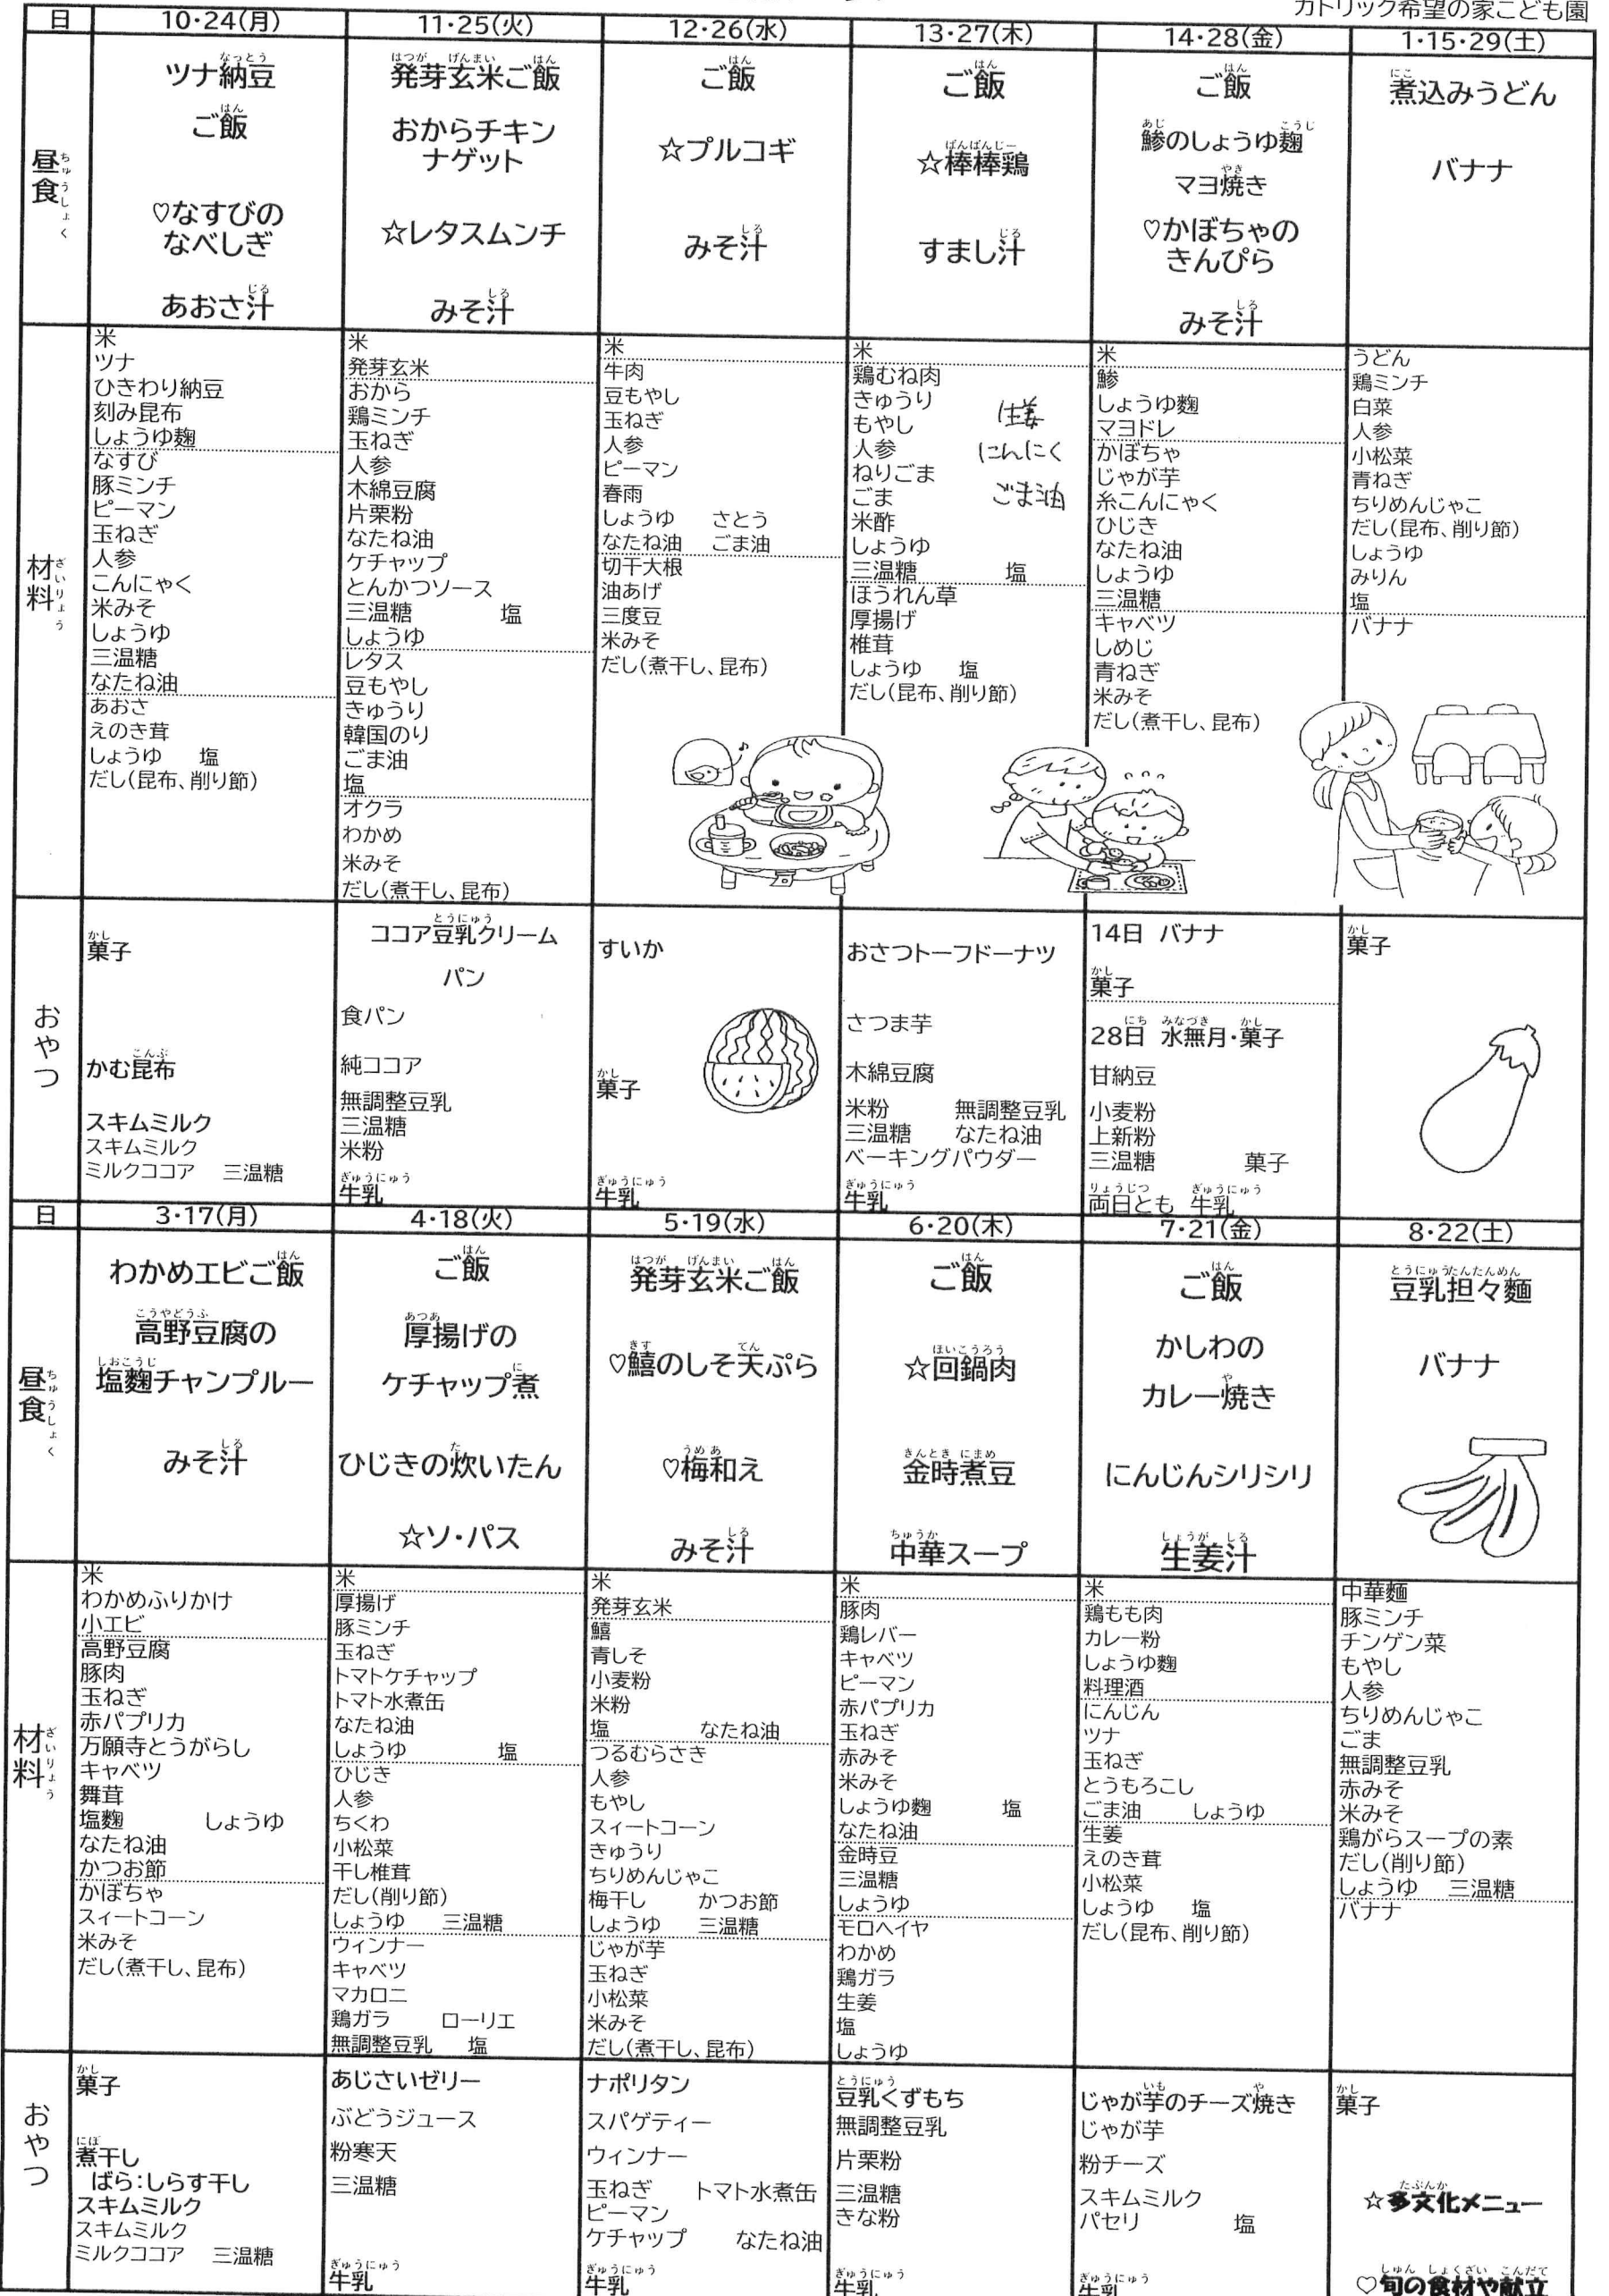 カトリック希望の家こども園
日
10・24(月)
11・25(火)
12・26(水)
13・27(木)
14・28(金)
1・15・29(土)
昼食
ちゅうしょく
なっとう
ツナ納豆
はん
ご飯
♡なすびの
なべしぎ
じる
あおさ汁
はつが げんまい はん
発芽玄米ご飯
おからチキン
ナゲット
☆レタスムンチ
しる
みそ汁
はん
ご飯
☆プルコギ
しる
みそ汁
はん
ご飯
ばんばんじー
☆棒棒鶏
じる
すまし汁
はん
ご飯
あじ こうじ
鯵のしょうゆ麹
やき
マヨ焼き
♡かぼちゃの
きんぴら
しる
みそ汁
にこ
煮込みうどん
バナナ
材料
ざいりょう
米
ツナ
ひきわり納豆
刻み昆布
しょうゆ麹
なすび
豚ミンチ
ピーマン
玉ねぎ
人参
こんにゃく
米みそ
しょうゆ
三温糖
なたね油
あおさ
えのき茸
しょうゆ 塩
だし(昆布、削り節)
米
発芽玄米
おから
鶏ミンチ
玉ねぎ
人参
木綿豆腐
片栗粉
なたね油
ケチャップ
とんかつソース
三温糖 塩
しょうゆ
レタス
豆もやし
きゅうり
韓国のり
ごま油
塩
オクラ
わかめ
米みそ
だし(煮干し、昆布)
米
牛肉
豆もやし
玉ねぎ
人参
ピーマン
春雨
しょうゆ さとう
なたね油 ごま油
切干大根
油あげ
三度豆
米みそ
だし(煮干し、昆布)
米
鶏むね肉
きゅうり 生姜
もやし
人参 にんにく
ねりごま
ごま ごま油
米酢
しょうゆ
三温糖 塩
ほうれん草
厚揚げ
椎茸
しょうゆ 塩
だし(昆布、削り節)
米
鯵
しょうゆ麹
マヨドレ
かぼちゃ
じゃが芋
糸こんにゃく
ひじき
なたね油
しょうゆ
三温糖
キャベツ
しめじ
青ねぎ
米みそ
だし(煮干し、昆布)
うどん
鶏ミンチ
白菜
人参
小松菜
青ねぎ
ちりめんじゃこ
だし(昆布、削り節)
しょうゆ
みりん
塩
バナナ
おやつ
かし
菓子
こんぶ
かむ昆布
スキムミルク
スキムミルク
ミルクココア 三温糖
とうにゅう
ココア豆乳クリーム
パン
食パン
純ココア
無調整豆乳
三温糖
米粉
ぎゅうにゅう
牛乳
すいか
かし
菓子
ぎゅうにゅう
牛乳
おさつトーフドーナツ
さつま芋
木綿豆腐
米粉 無調整豆乳
三温糖 なたね油
ベーキングパウダー
ぎゅうにゅう
牛乳
14日 バナナ
かし
菓子
にち みなづき かし
28日 水無月・菓子
甘納豆
小麦粉
上新粉
三温糖 菓子
りょうじつ ぎゅうにゅう
両日とも 牛乳
かし
菓子
日
3・17(月)
4・18(火)
5・19(水)
6・20(木)
7・21(金)
8・22(土)
昼食
ちゅうしょく
はん
わかめエビご飯
こうやどうふ
高野豆腐の
しおこうじ
塩麴チャンプルー
しる
みそ汁
はん
ご飯
あつあ
厚揚げの
に
ケチャップ煮
た
ひじきの炊いたん
☆ソ・パス
はつが げんまい はん
発芽玄米ご飯
きす てん
♡鱚のしそ天ぷら
うめ あ
♡梅和え
しる
みそ汁
はん
ご飯
ほいこうろう
☆回鍋肉
きんとき にまめ
金時煮豆
ちゅうか
中華スープ
はん
ご飯
かしわの
や
カレー焼き
にんじんシリシリ
しょうが しる
生姜汁
とうにゅうたんたんめん
豆乳担々麺
バナナ
材料
ざいりょう
米
わかめふりかけ
小エビ
高野豆腐
豚肉
玉ねぎ
赤パプリカ
万願寺とうがらし
キャベツ
舞茸
塩麴 しょうゆ
なたね油
かつお節
かぼちゃ
スィートコーン
米みそ
だし(煮干し、昆布)
米
厚揚げ
豚ミンチ
玉ねぎ
トマトケチャップ
トマト水煮缶
なたね油
しょうゆ 塩
ひじき
人参
ちくわ
小松菜
干し椎茸
だし(削り節)
しょうゆ 三温糖
ウィンナー
キャベツ
マカロニ
鶏ガラ ローリエ
無調整豆乳 塩
米
発芽玄米
鱚
青しそ
小麦粉
米粉
塩 なたね油
つるむらさき
人参
もやし
スィートコーン
きゅうり
ちりめんじゃこ
梅干し かつお節
しょうゆ 三温糖
じゃが芋
玉ねぎ
小松菜
米みそ
だし(煮干し、昆布)
米
豚肉
鶏レバー
キャベツ
ピーマン
赤パプリカ
玉ねぎ
赤みそ
米みそ
しょうゆ麴 塩
なたね油
金時豆
三温糖
しょうゆ
モロヘイヤ
わかめ
鶏ガラ
生姜
塩
しょうゆ
米
鶏もも肉
カレー粉
しょうゆ麴
料理酒
にんじん
ツナ
玉ねぎ
とうもろこし
ごま油 しょうゆ
生姜
えのき茸
小松菜
しょうゆ 塩
だし(昆布、削り節)
中華麵
豚ミンチ
チンゲン菜
もやし
人参
ちりめんじゃこ
ごま
無調整豆乳
赤みそ
米みそ
鶏がらスープの素
だし(削り節)
しょうゆ 三温糖
バナナ
おやつ
かし
菓子
にぼ
煮干し
ばら:しらす干し
スキムミルク
スキムミルク
ミルクココア 三温糖
あじさいゼリー
ぶどうジュース
粉寒天
三温糖
ぎゅうにゅう
牛乳
ナポリタン
スパゲティー
ウィンナー
玉ねぎ トマト水煮缶
ピーマン
ケチャップ なたね油
ぎゅうにゅう
牛乳
とうにゅう
豆乳くずもち
無調整豆乳
片栗粉
三温糖
きな粉
ぎゅうにゅう
牛乳
いも や
じゃが芋のチーズ焼き
じゃが芋
粉チーズ
スキムミルク
パセリ 塩
ぎゅうにゅう
牛乳
かし
菓子
たぶんか
☆多文化メニュー
しゅん しょくざい こんだて
♡旬の食材や献立